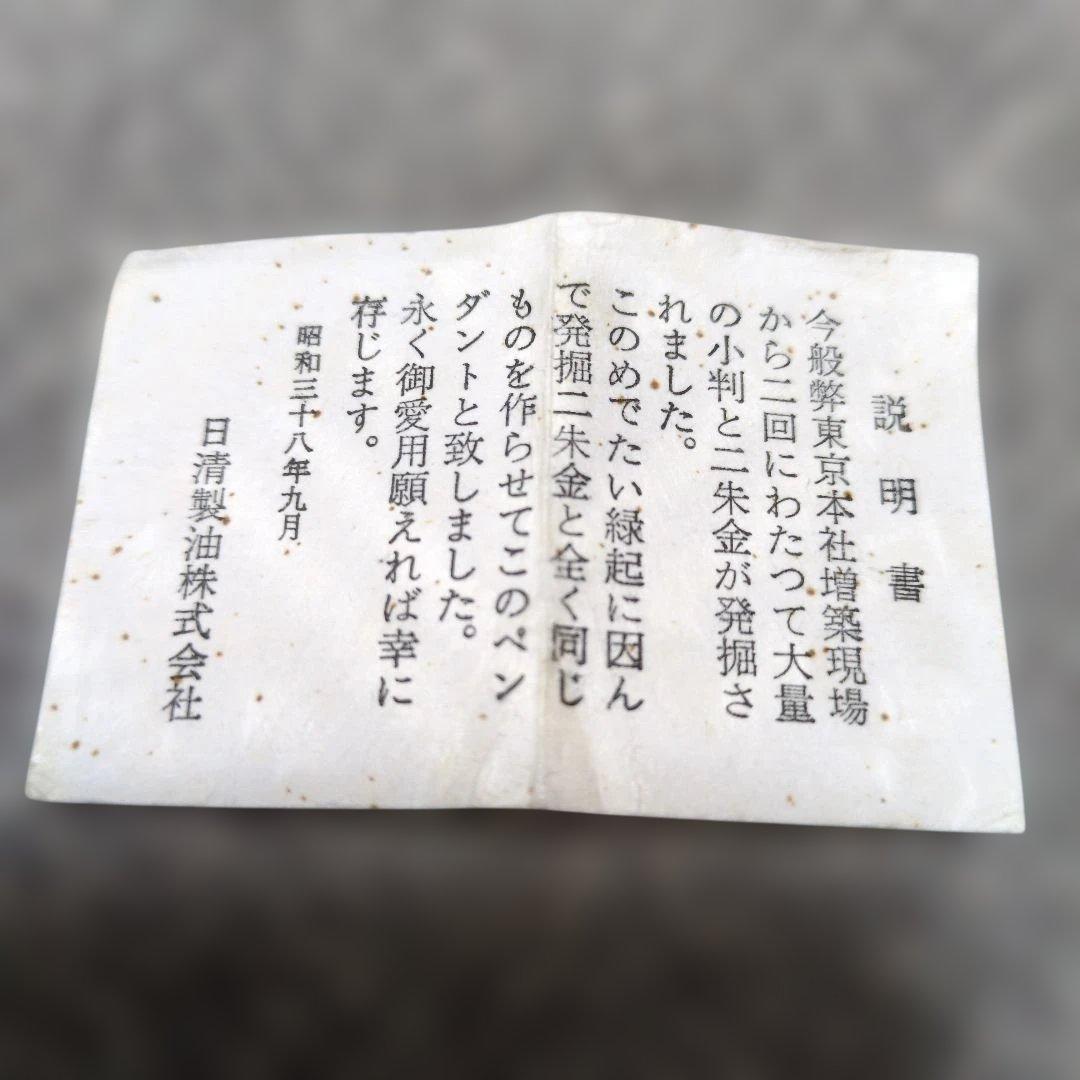 説明書
今般弊東京本社増築現場
から二回にわたつて大量
の小判と二朱金が発掘さ
れました。
このめでたい縁起に因ん
で発掘二朱金と全く同じ
ものを作らせてこのペン
ダントと致しました。
永く御愛用願えれば幸に
存じます。
昭和三十八年九月
日清製油株式会社